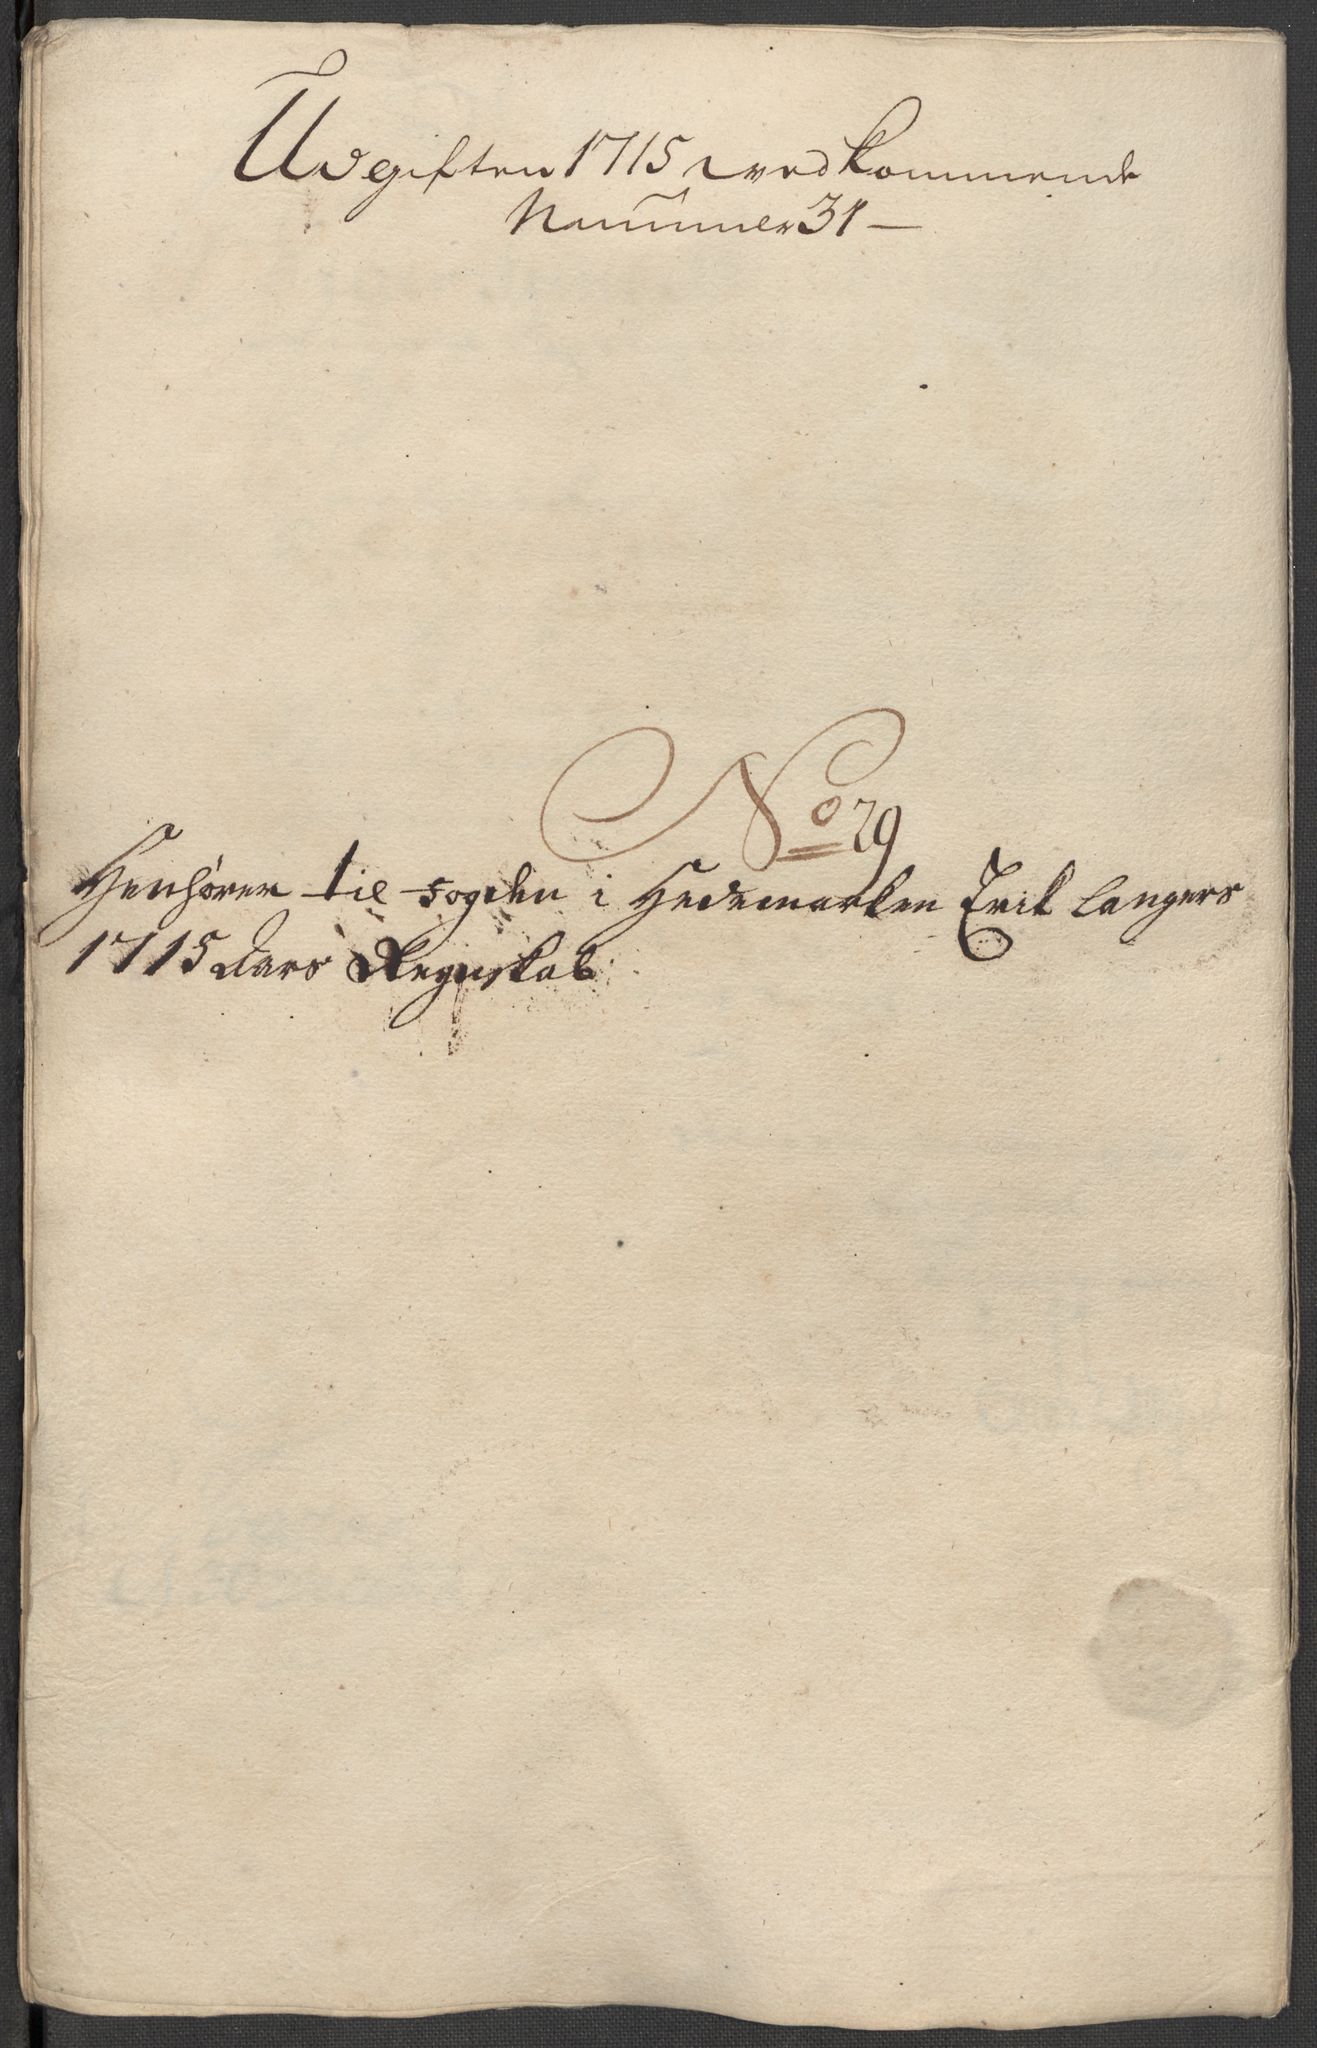 Udgiften 1715 vedkommende
Nummer 31 —
No 29
Henhører til fogden i Hedemarken Erik Langers
1715 Aars Regnskab